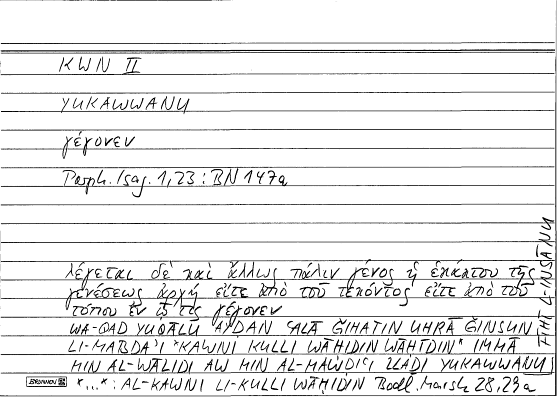 KWN II
YUKAWWANU
γέγονεν
Porph. Isag. 1,23 : BN 147a
λέγεται δὲ καὶ ἄλλως πάλιν γένος ἡ ἑκάστου τῆς
γενέσεως ἀρχή εἴτε ἀπὸ τοῦ τεκόντος εἴτε ἀπὸ τοῦ
τόπου ἐν ᾧ τις γέγονεν
WA-QAD YUQĀLU AYḌAN ʿALĀ ǦIHATIN UḪRĀ ǦINSUN
LI-MABDAʾI *KAWNI KULLI WĀḤIDIN WĀḤIDIN* IMMĀ
MIN AL-WĀLIDI AW MIN AL-MAWḌIʿI LLAḎI YUKAWWANU
FĪHI L-INSĀNU
BRUNNEN *...*: AL-KAWNI LI-KULLI WĀḤIDIN Bodl. Marsh 28,29a